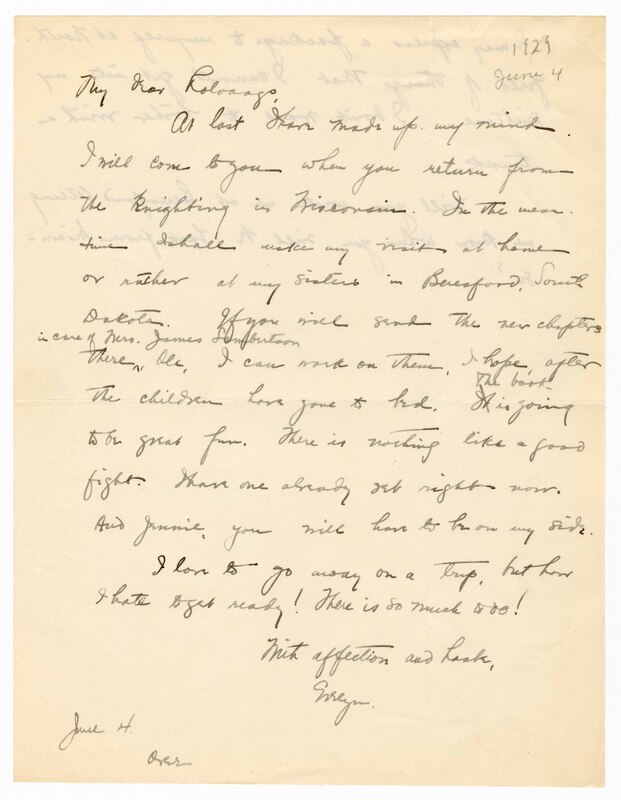 1929
June 4
My Dear Rolvaags,
At last I have made up my mind.
I will come to you when you return from
the knighting in Wisconsin. In the mean-
time I shall make my visit at home
or rather at my sisters in Beresford, South
Dakota. If you will send the new chapters
in care of Mrs. James Lambertson
there, Ole, I can work on them, I hope, after
The book
the children have gone to bed. It is going
to be great fun. There is nothing like a good
fight. I have one already set right now.
And Jennie, you will have to be on my side.
I love to go away on a trip, but how
I hate to get ready! There is so much to do!
With affection and haste,
Evelyn.
June 4.
Over